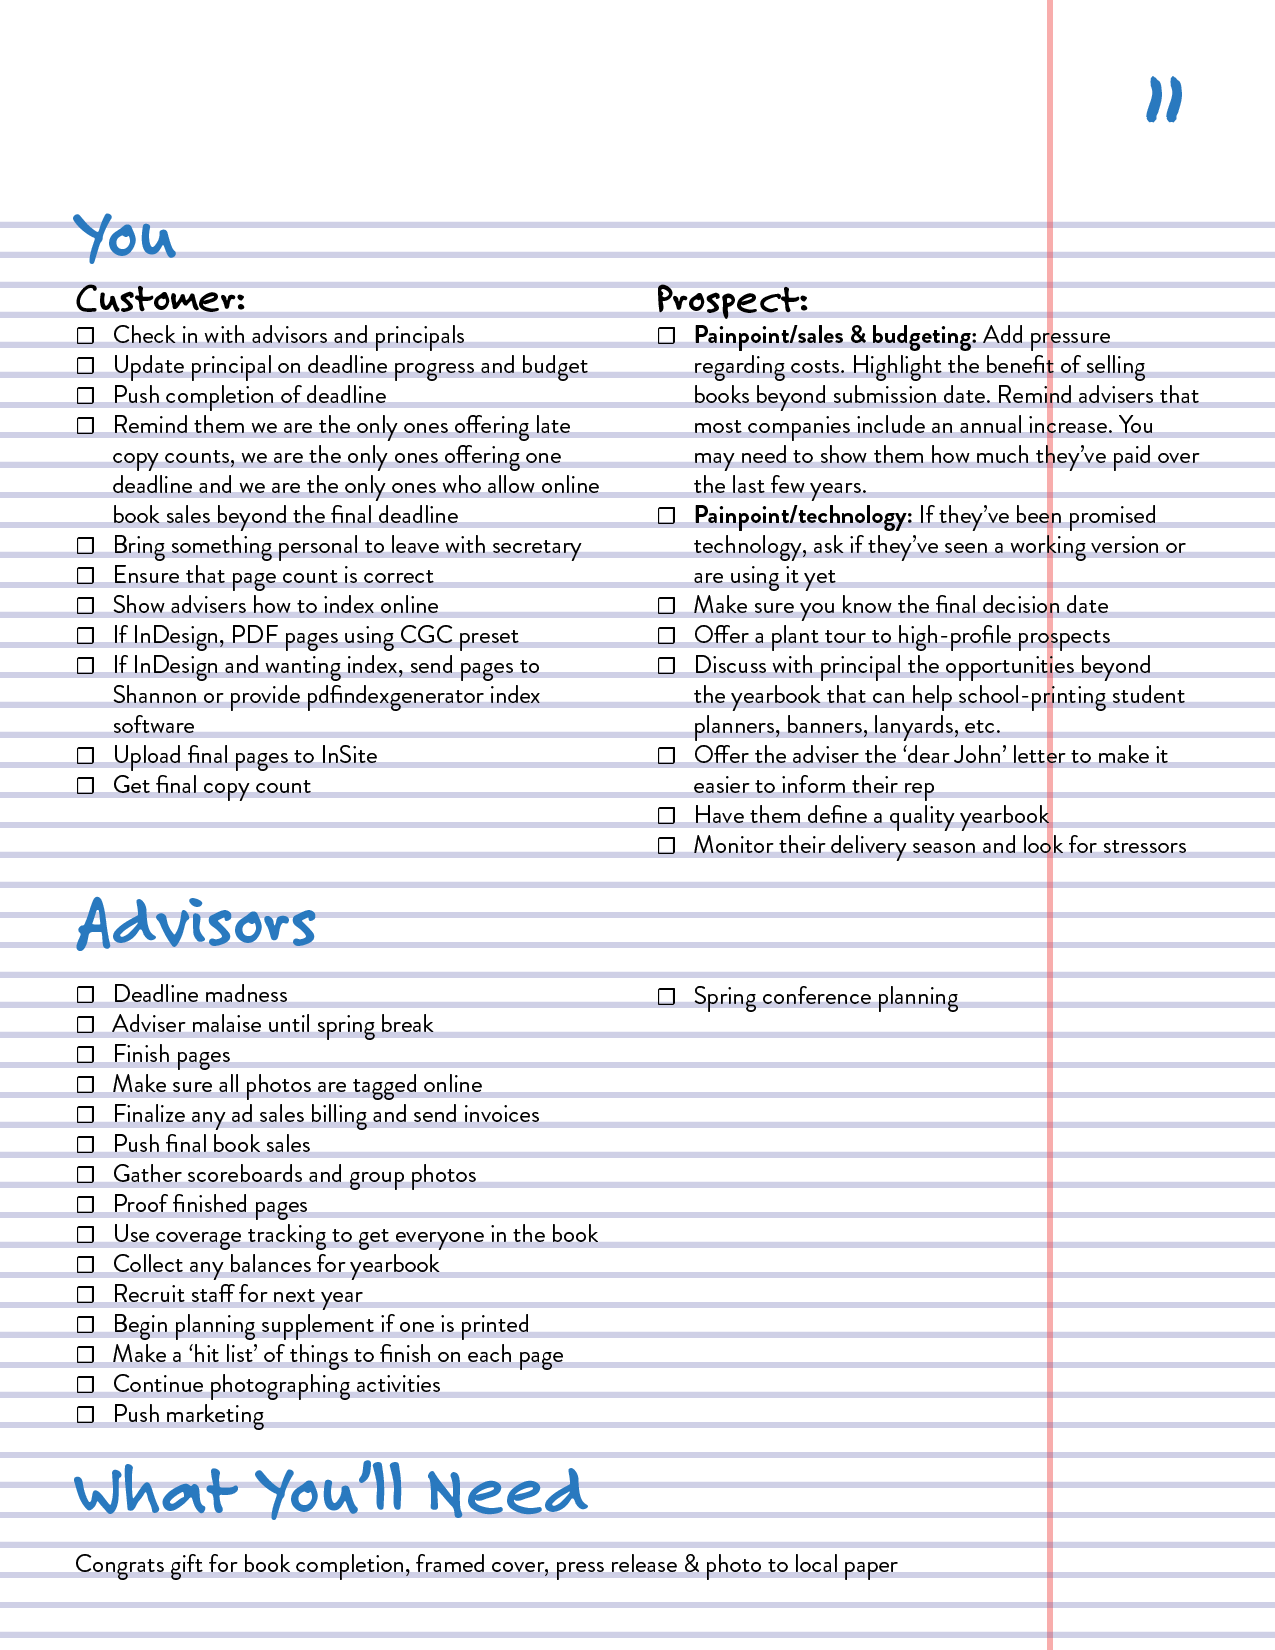 11
You
Customer:
❒ Check in with advisors and principals
❒ Update principal on deadline progress and budget
❒ Push completion of deadline
❒ Remind them we are the only ones offering late
copy counts, we are the only ones offering one
deadline and we are the only ones who allow online
book sales beyond the final deadline
❒ Bring something personal to leave with secretary
❒ Ensure that page count is correct
❒ Show advisers how to index online
❒ If InDesign, PDF pages using CGC preset
❒ If InDesign and wanting index, send pages to
Shannon or provide pdfindexgenerator index
software
❒ Upload final pages to InSite
❒ Get final copy count
Prospect:
❒ Painpoint/sales & budgeting: Add pressure
regarding costs. Highlight the benefit of selling
books beyond submission date. Remind advisers that
most companies include an annual increase. You
may need to show them how much they’ve paid over
the last few years.
❒ Painpoint/technology: If they’ve been promised
technology, ask if they’ve seen a working version or
are using it yet
❒ Make sure you know the final decision date
❒ Offer a plant tour to high-profile prospects
❒ Discuss with principal the opportunities beyond
the yearbook that can help school-printing student
planners, banners, lanyards, etc.
❒ Offer the adviser the ‘dear John’ letter to make it
easier to inform their rep
❒ Have them define a quality yearbook
❒ Monitor their delivery season and look for stressors
Advisors
❒ Deadline madness
❒ Adviser malaise until spring break
❒ Finish pages
❒ Make sure all photos are tagged online
❒ Finalize any ad sales billing and send invoices
❒ Push final book sales
❒ Gather scoreboards and group photos
❒ Proof finished pages
❒ Use coverage tracking to get everyone in the book
❒ Collect any balances for yearbook
❒ Recruit staff for next year
❒ Begin planning supplement if one is printed
❒ Make a ‘hit list’ of things to finish on each page
❒ Continue photographing activities
❒ Push marketing
❒ Spring conference planning
What You’ll Need
Congrats gift for book completion, framed cover, press release & photo to local paper